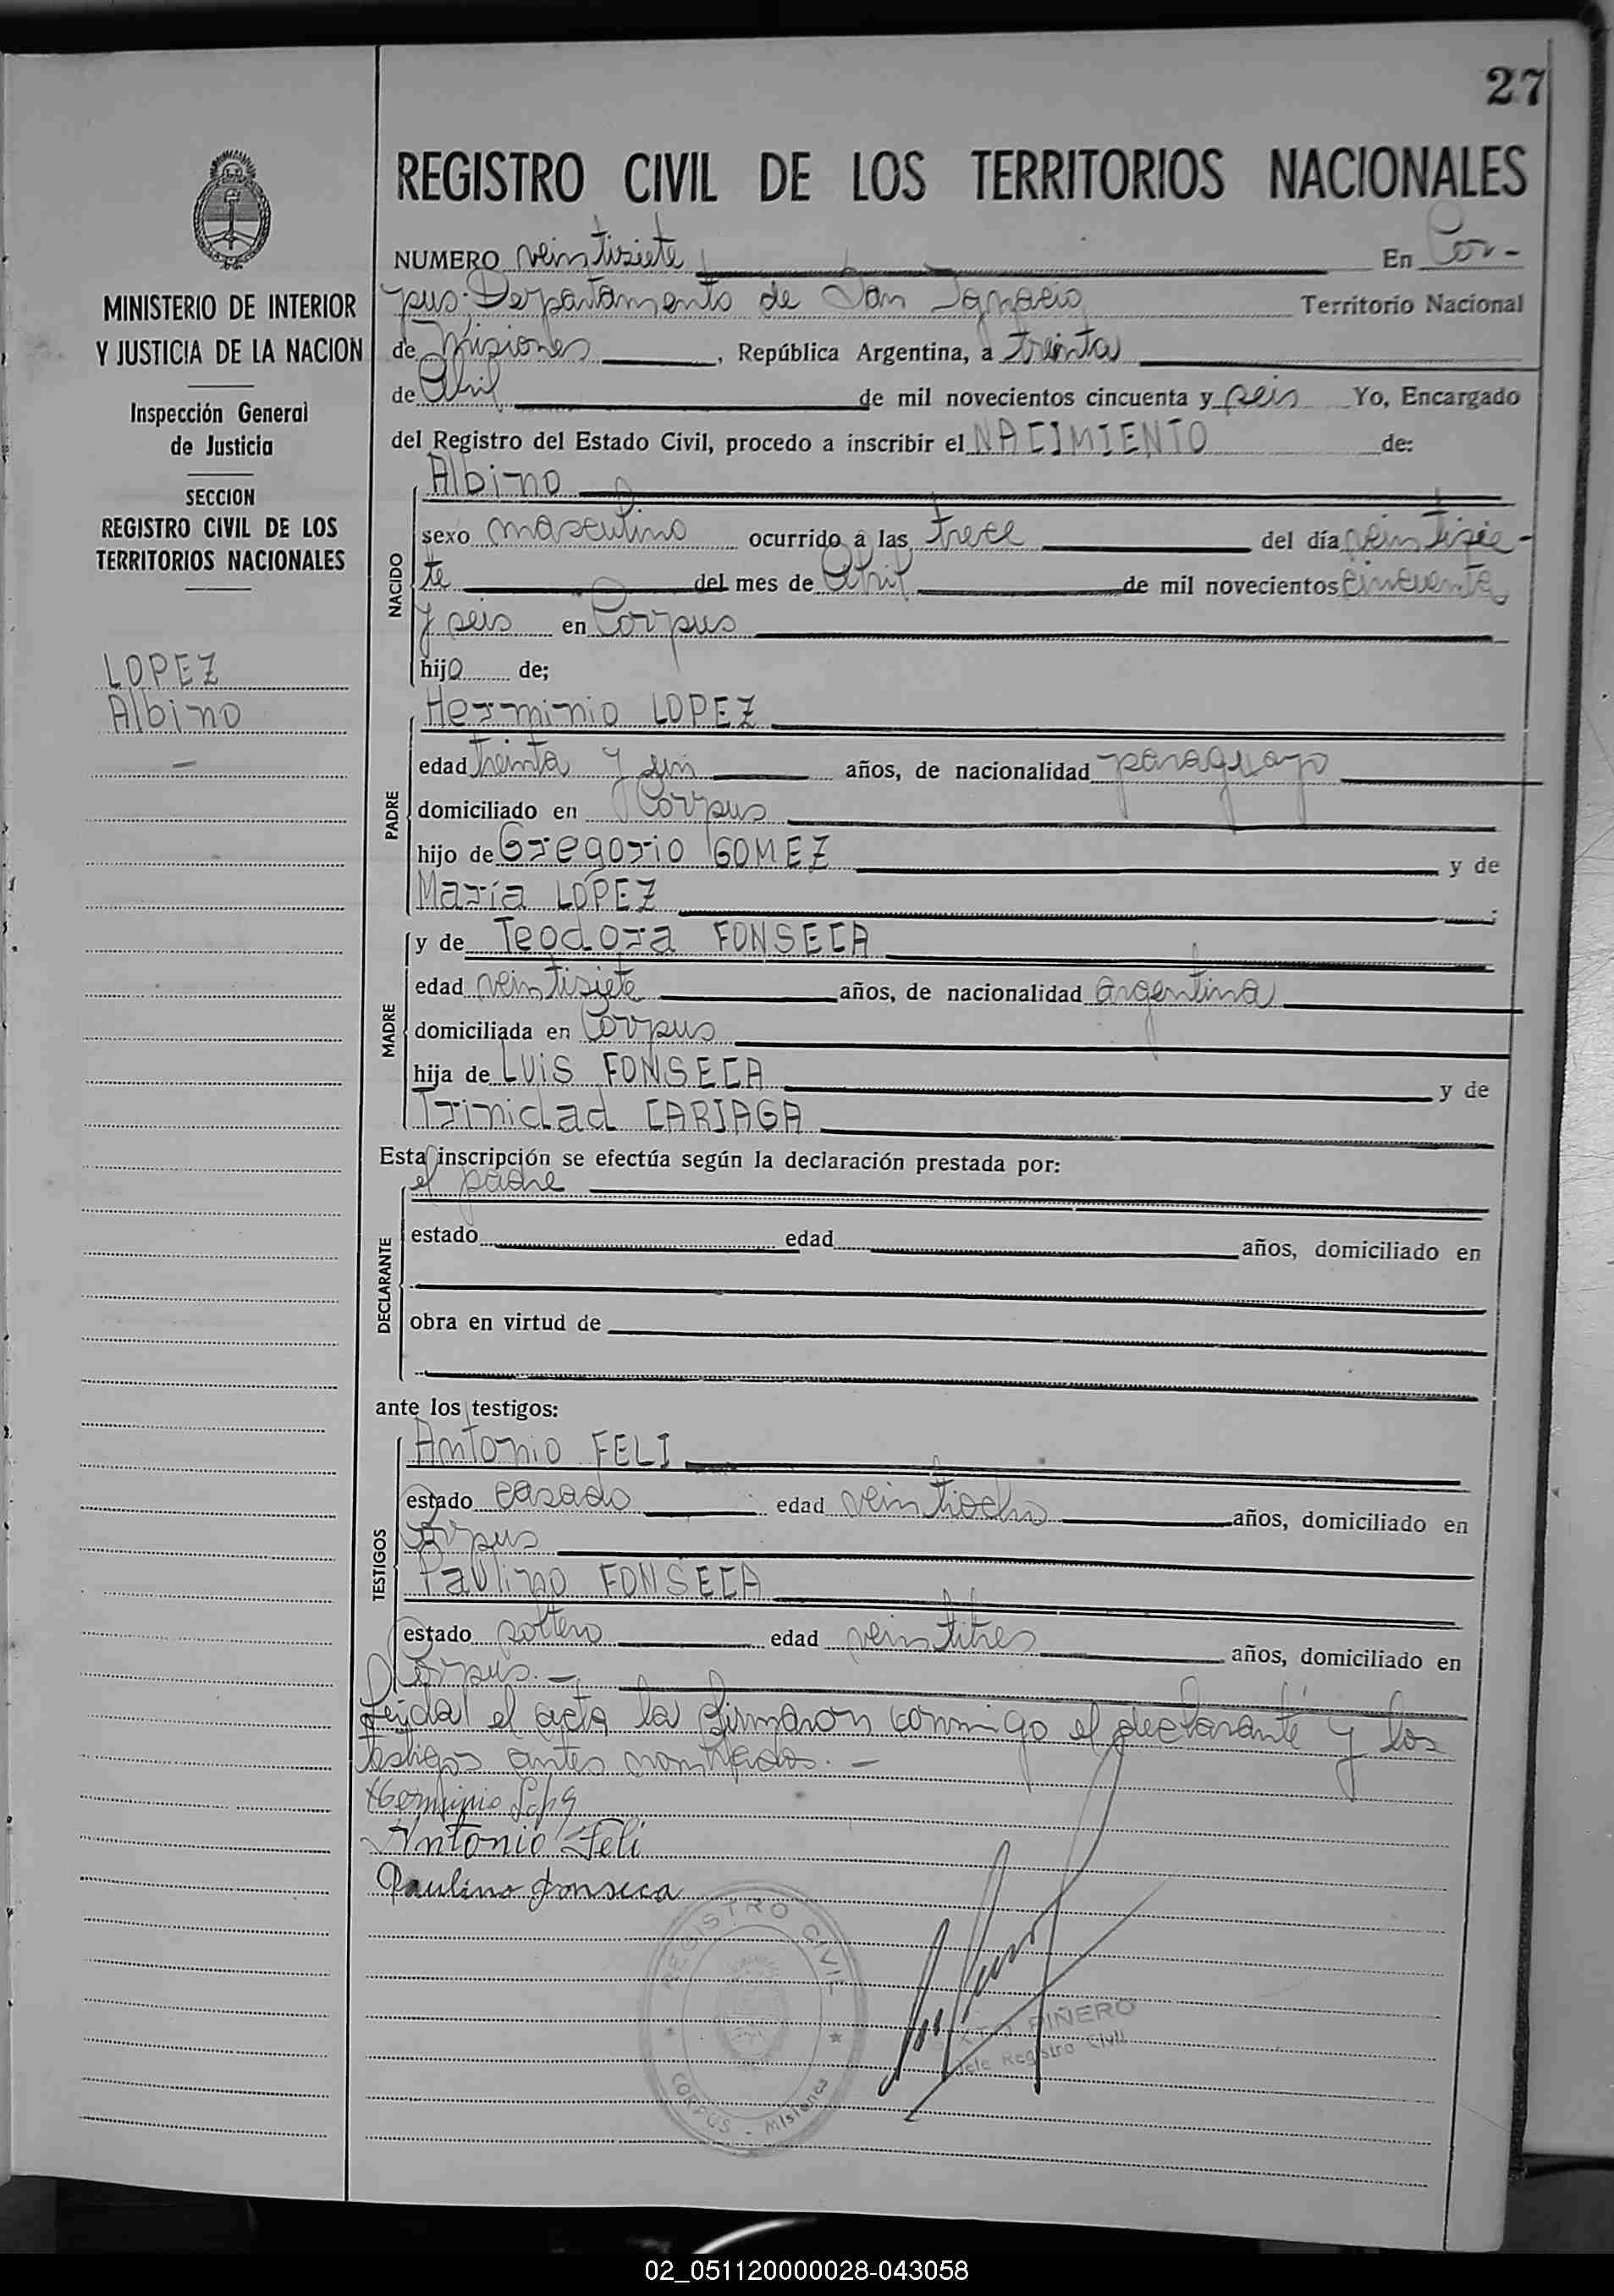 27
REGISTRO CIVIL DE LOS TERRITORIOS NACIONALES
NUMERO veintisiete En Cor-
pus. Departamento de San Ignacio Territorio Nacional
de Misiones, República Argentina, a treinta
de Abril de mil novecientos cincuenta y seis Yo, Encargado
del Registro del Estado Civil, procedo a inscribir el NACIMIENTO de:
MINISTERIO DE INTERIOR
Y JUSTICIA DE LA NACION
Inspección General
de Justicia
SECCION
REGISTRO CIVIL DE LOS
TERRITORIOS NACIONALES
LOPEZ
Albino
—
NACIDO
Albino
sexo masculino ocurrido a las trece del día veintisie-
te del mes de Abril de mil novecientos cincuenta
y seis en Corpus
hijo de;
PADRE
Herminio LOPEZ
edad treinta y un años, de nacionalidad paraguayo
domiciliado en Corpus
hijo de Gregorio GOMEZ y de
María LOPEZ ;
MADRE
y de Teodora FONSECA
edad veintisiete años, de nacionalidad argentina
domiciliada en Corpus
hija de LUiS FONSECA y de
Trinidad CARIAGA
Esta inscripción se efectúa según la declaración prestada por:
DECLARANTE
el padre
estado edad años, domiciliado en
obra en virtud de
ante los testigos:
TESTIGOS
Antonio FELI
estado casado edad veintiocho años, domiciliado en
Corpus
Paulino FONSECA
estado soltero edad veintitres años, domiciliado en
Corpus. —
Leída el acta la firmaron conmigo el declarante y los
testigos antes nombrados. —
Herminio Lopez
Antonio Feli
Paulino Fonseca
REGISTRO CIVIL
CORPUS - Misiones
PIÑERO
Jefe Registro Civil
02_051120000028-043058